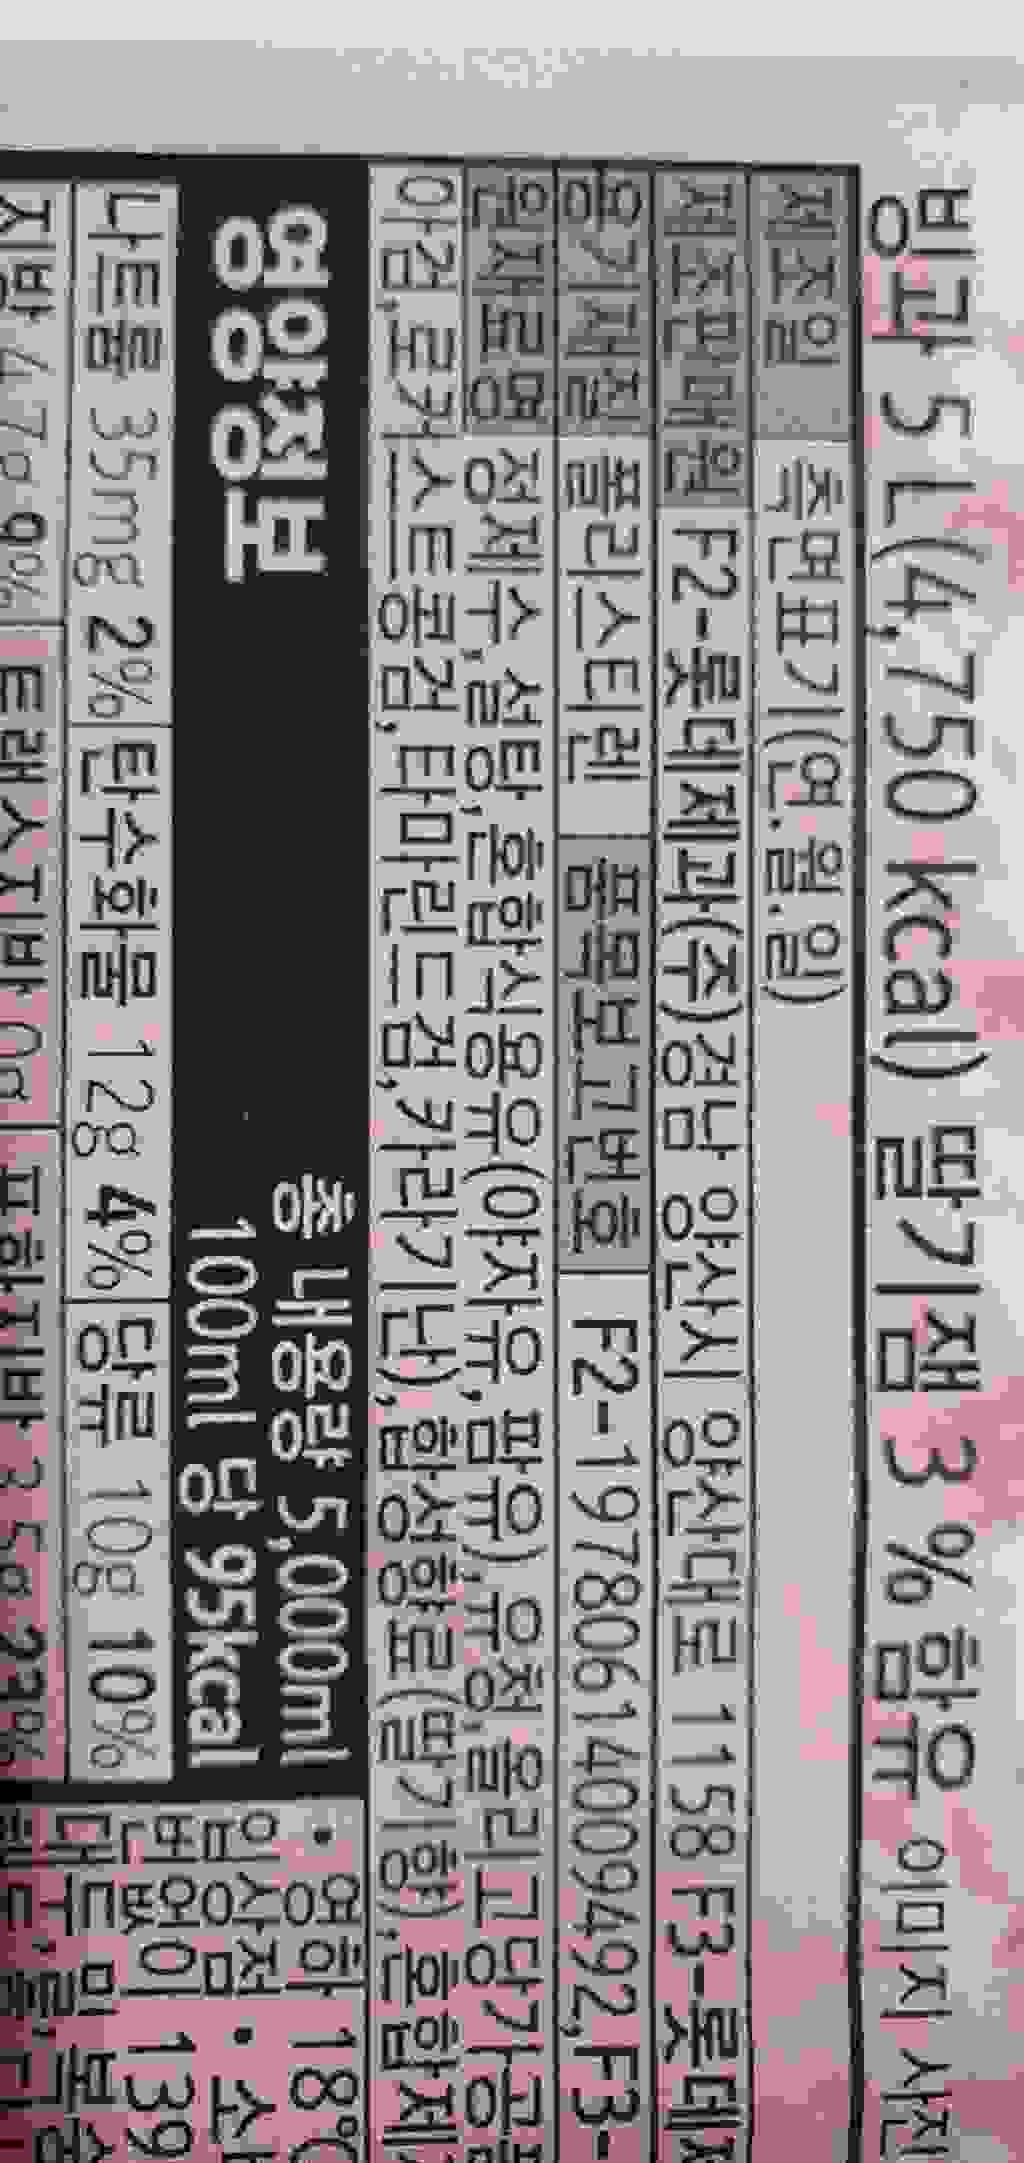 빙과 5 L(4,750 kcal) 딸기잼 3 % 함유 이미지 사진
제조일 측면표기(연.월.일)
제조판매원 F2-롯데제과(주)경남 양산시 양산대로 1158 F3-롯데제
용기재질 폴리스티렌 품목보고번호 F2-19780614009492,F3-
원재료명 정제수,설탕,혼합식용유(야자유,팜유),유청,올리고당가공품
아검,로커스트콩검,타마린드검,카라기난),합성향료(딸기향),혼합제
영양정보
총 내용량 5,000ml
100ml 당 95kcal
나트륨 35mg 2% 탄수화물 12g 4% 당류 10g 10%
지방 4.7g 9% 트랜스지방 0g 포화지방 3.5g 23%
• 영하 18℃
이상점 • 소
번없이 139